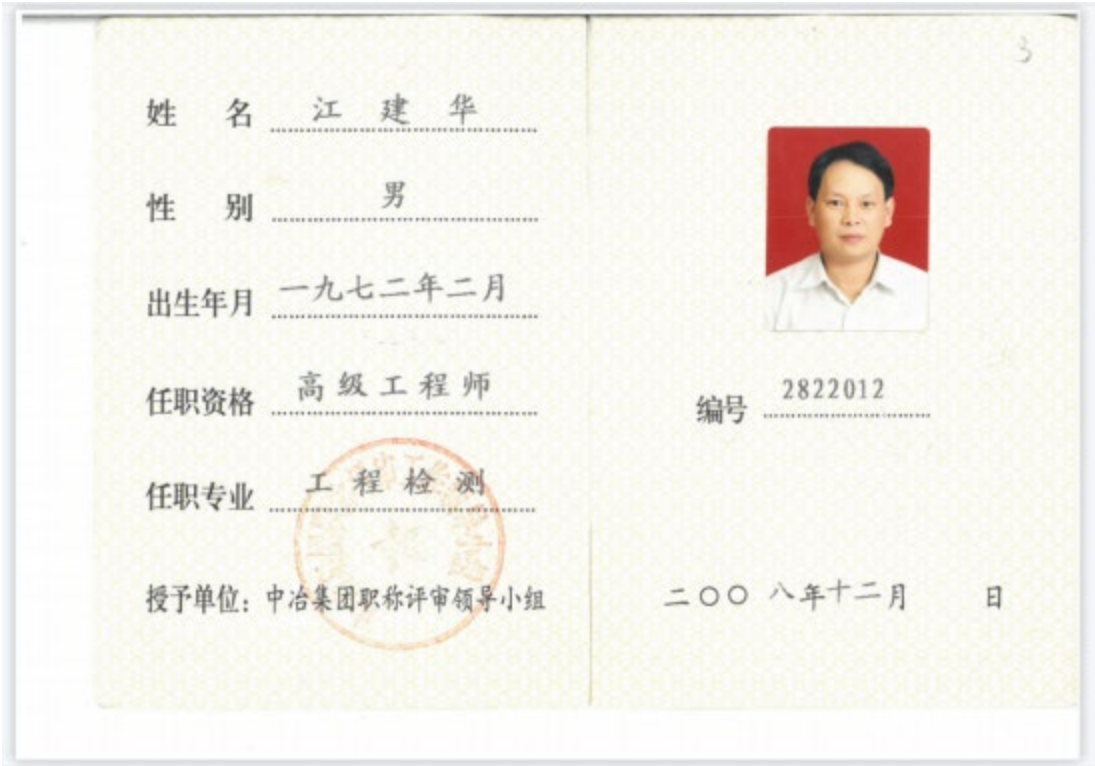 3
姓 名 江 建 华
性 别 男
出生年月 一九七二年二月
任职资格 高级工程师
任职专业 工程检测
授予单位：中冶集团职称评审领导小组
编号 2822012
二〇〇八年十二月 日